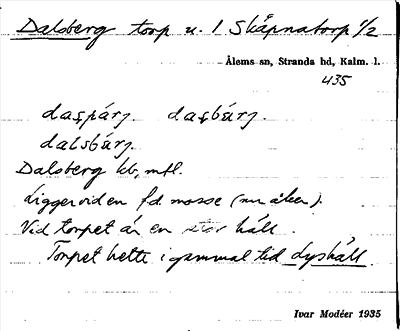 Dalsberg torp u. 1 Skåpnatorp 1/2
Ålems sn, Stranda hd, Kalm. l.
435
daşpárj. daşbúrj.
dalsbúrj.
Dalsberg kb, mfl.
Ligger vid en fd mosse (nu åker).
Vid torpet är en stor häll.
Torpet hette i gammal tid Dyshäll.
Ivar Modéer 1935